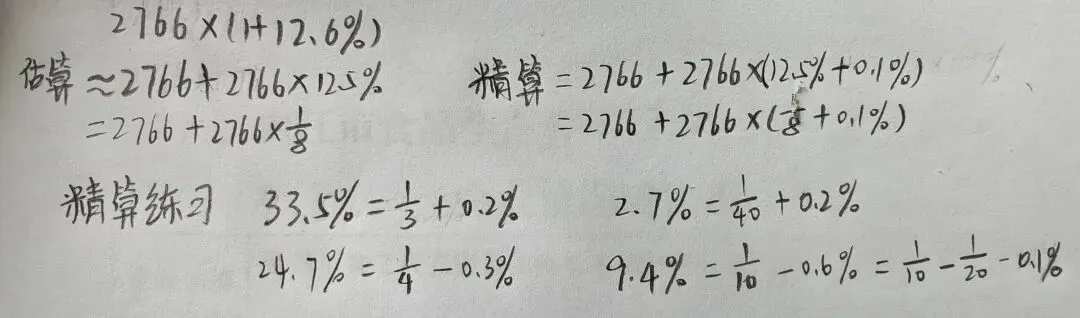 2766×(1+12.6%)
估算≈2766+2766×12.5%
=2766+2766×1/8
精算=2766+2766×(12.5%+0.1%)
=2766+2766×(1/8+0.1%)
精算练习 33.5%=1/3+0.2% 2.7%=1/40+0.2%
24.7%=1/4-0.3% 9.4%=1/10-0.6%=1/10-1/20-0.1%